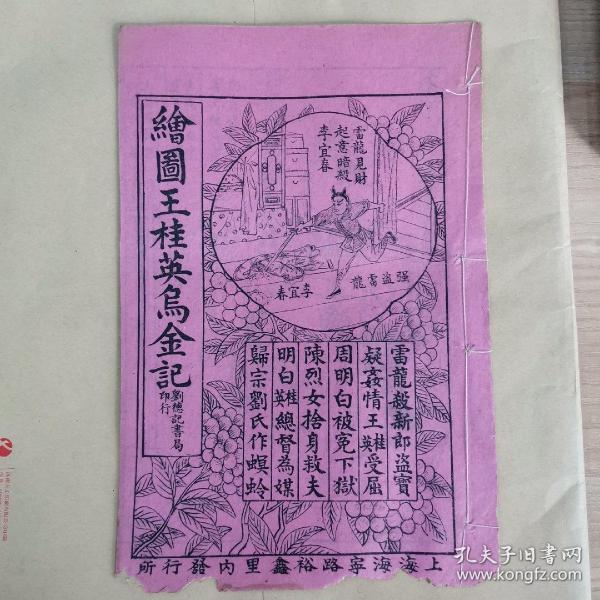 繪圖王桂英烏金記
劉德記書局
印行
雷龍見財
起意暗殺
李宜春
強盗雷龍
李宜春
雷龍殺新郎盜寶
疑姦情王桂英受屈
周明白被冤下獄
陳烈女捨身救夫
明白桂英總督為媒
歸宗劉氏作螟蛉
上海海寧路裕鑫里內發行所
孔夫子旧书网
www.kongfz.com